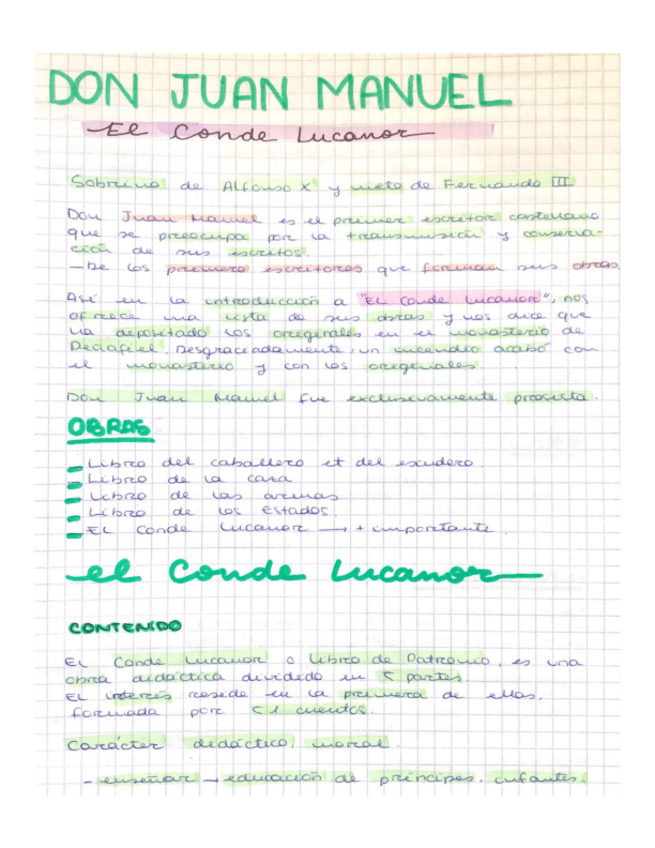 DON JUAN MANUEL
El Conde Lucanor
Sobrino de Alfonso X y nieto de Fernando III
Don Juan Manuel es el primer escritor castellano
que se preocupa por la transmisión y conserva-
ción de sus escritos.
- De los primeros escritores que firman sus obras.
Así en la introducción a "El Conde Lucanor", nos
ofrece una lista de sus obras y nos dice que
ha depositado los originales en el monasterio de
Peñafiel. Desgraciadamente, un incendio acabó con
el monasterio y con los originales.
Don Juan Manuel fue exclusivamente prosista.
OBRAS
- Libro del caballero et del escudero.
- Libro de la caza
- Libro de las armas
- Libro de los estados.
- El Conde Lucanor → + importante.
el Conde Lucanor
CONTENIDO
El Conde Lucanor o Libro de Patronio, es una
obra didáctica dividido en 5 partes.
El interés reside en la primera de ellas,
formada por 51 cuentos.
Carácter didáctico, moral.
- enseñar → educación de príncipes, infantes.